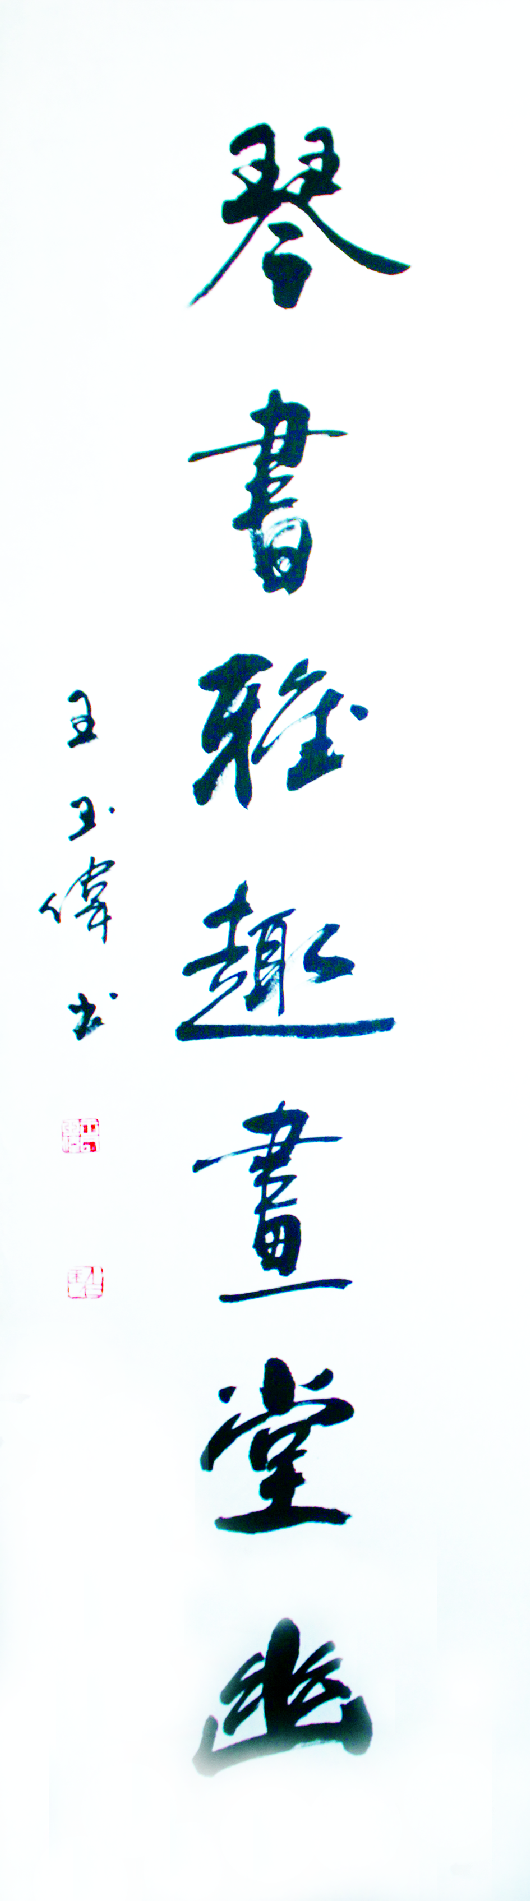 琴書雅趣畫堂幽
王玉偉书